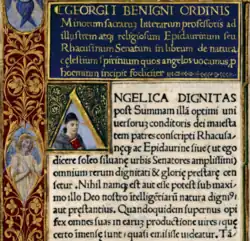 GEORGII BENIGNI ORDINIS
Minorum sacrarum literarum professoris ad
illustrem atque religiosum Epidaurinum seu
Rhacusinum Senatum in librum de natura
cælestium spirituum quos angelos vocamus p
hoemium incipit fœliciter
ANGELICA DIGNITAS
post Summam illā optimi uni
versorum conditoris dei maiesta
tem patres conscripti Rhacusa
neque ac Epidaurine siue (ut ego
dicere soleo siluanæ urbis Senatores amplissimi)
omnium rerum dignitati & gloriæ prestare cen
setur. Nihil namque est aut esse potest sub maxi
mo illo Deo nostro itelligétiarū natura digniꝰ
aut prestantius. Quandoquidem supernus opi
fex omnes suas in earum productione uires (ut
certo immense sunt) quasi effudisse uidetur. Tā